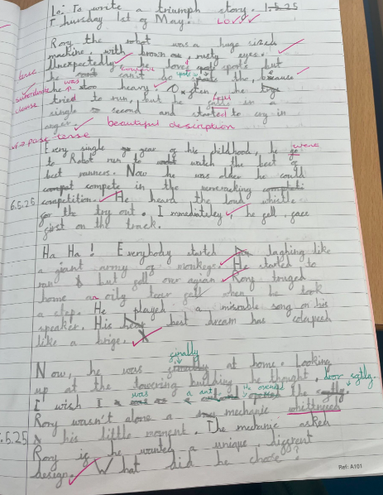 Lo: To write a triumph story. 1.5.25
Thursday 1st of May.
Rory the robot was a huge sized
machine, with brown and rusty eyes.
Unexpectedly he loves sports but
tense he can't do sports because
subordinate clause he was heavy. Often, he
tried to run, but he falls in a
single second and started to cry in
anger. beautiful description
past tense
Every single year of his childhood, he went
to Robot run to watch the best of
best runners. Now he was older he could
compete in the nerveracking
6.5.25 competition. He heard the loud whistle
go the try out. Immediately, he fell face
first on the track.
Ha Ha! Everybody started laughing like
a giant army of monkeys. He started to
run but fell over again. Rory truged
home an oily tear fell when he took
a step. He played a miserable song on his
speaker. His best dream has colapsed
like a brige.
Now, he was finally at home. Looking
up at the towering building he thought,
I wish I was
Rory wasn't alone a mechanic whittnesed
6.5.25 his little moment. The mechanic asked
Rory if he wanted a unique, different
design. What did he chose?
Ref: A101